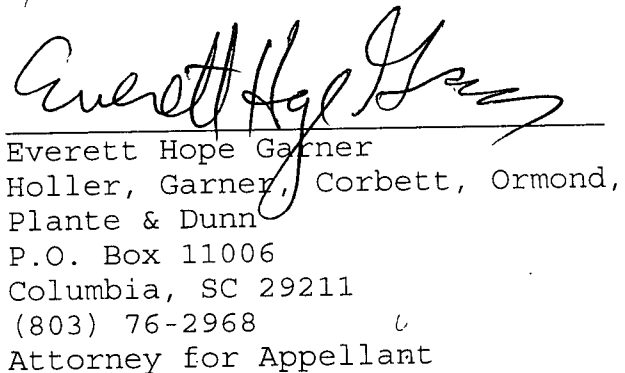 Everett Hope Garner
Everett Hope Garner
Holler, Garner, Corbett, Ormond,
Plante & Dunn
P.O. Box 11006
Columbia, SC 29211
(803) 76-2968
Attorney for Appellant